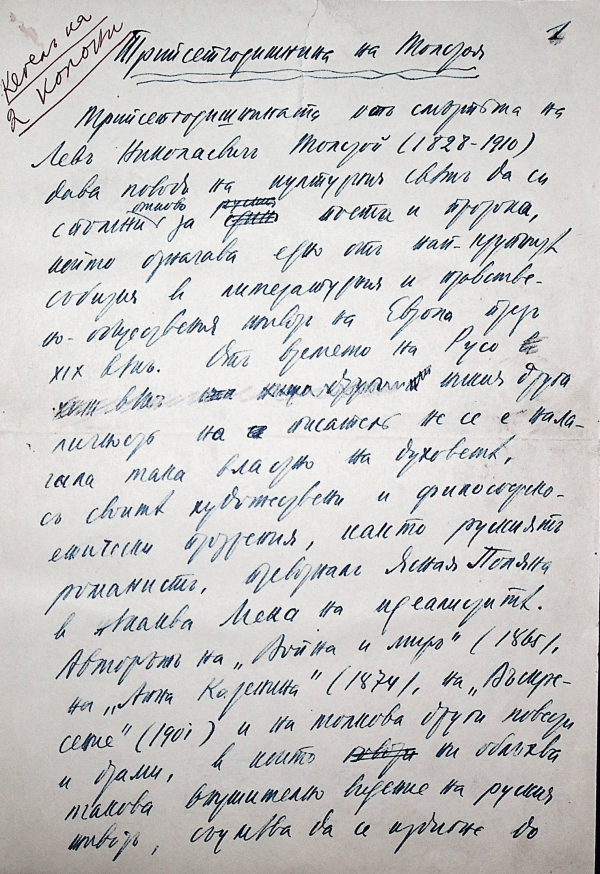 Кегель на
2 колони
1
Трийсетгодишнина на Толстой
Трийсетгодишнината отъ смъртьта на
Левъ Николаевичъ Толстой (1828-1910)
дава поводъ на културния свѣтъ да си
спомни отново за поета и пророка,
който означава едно отъ най-крупнитѣ
събития в литературния и нравстве-
но-обществения животъ на Европа презъ
XIX вѣкъ. Отъ времето на Русо
никоя друга
личность на писатель не се е нала-
гала така властно на духоветѣ,
съ своитѣ художествени и философско-
етически прозрения, както руския
романистъ, превърналъ Ясная Поляна
в такава Мека на идеалиститѣ.
Авторътъ на „Война и миръ" (1865),
на „Анна Каренина" (1874), на „Възкре-
сение" (1901) и на толкова други повести
и драми, в които ни облъхва
такова внушително видение на руския
животъ, сполучва да се издигне до